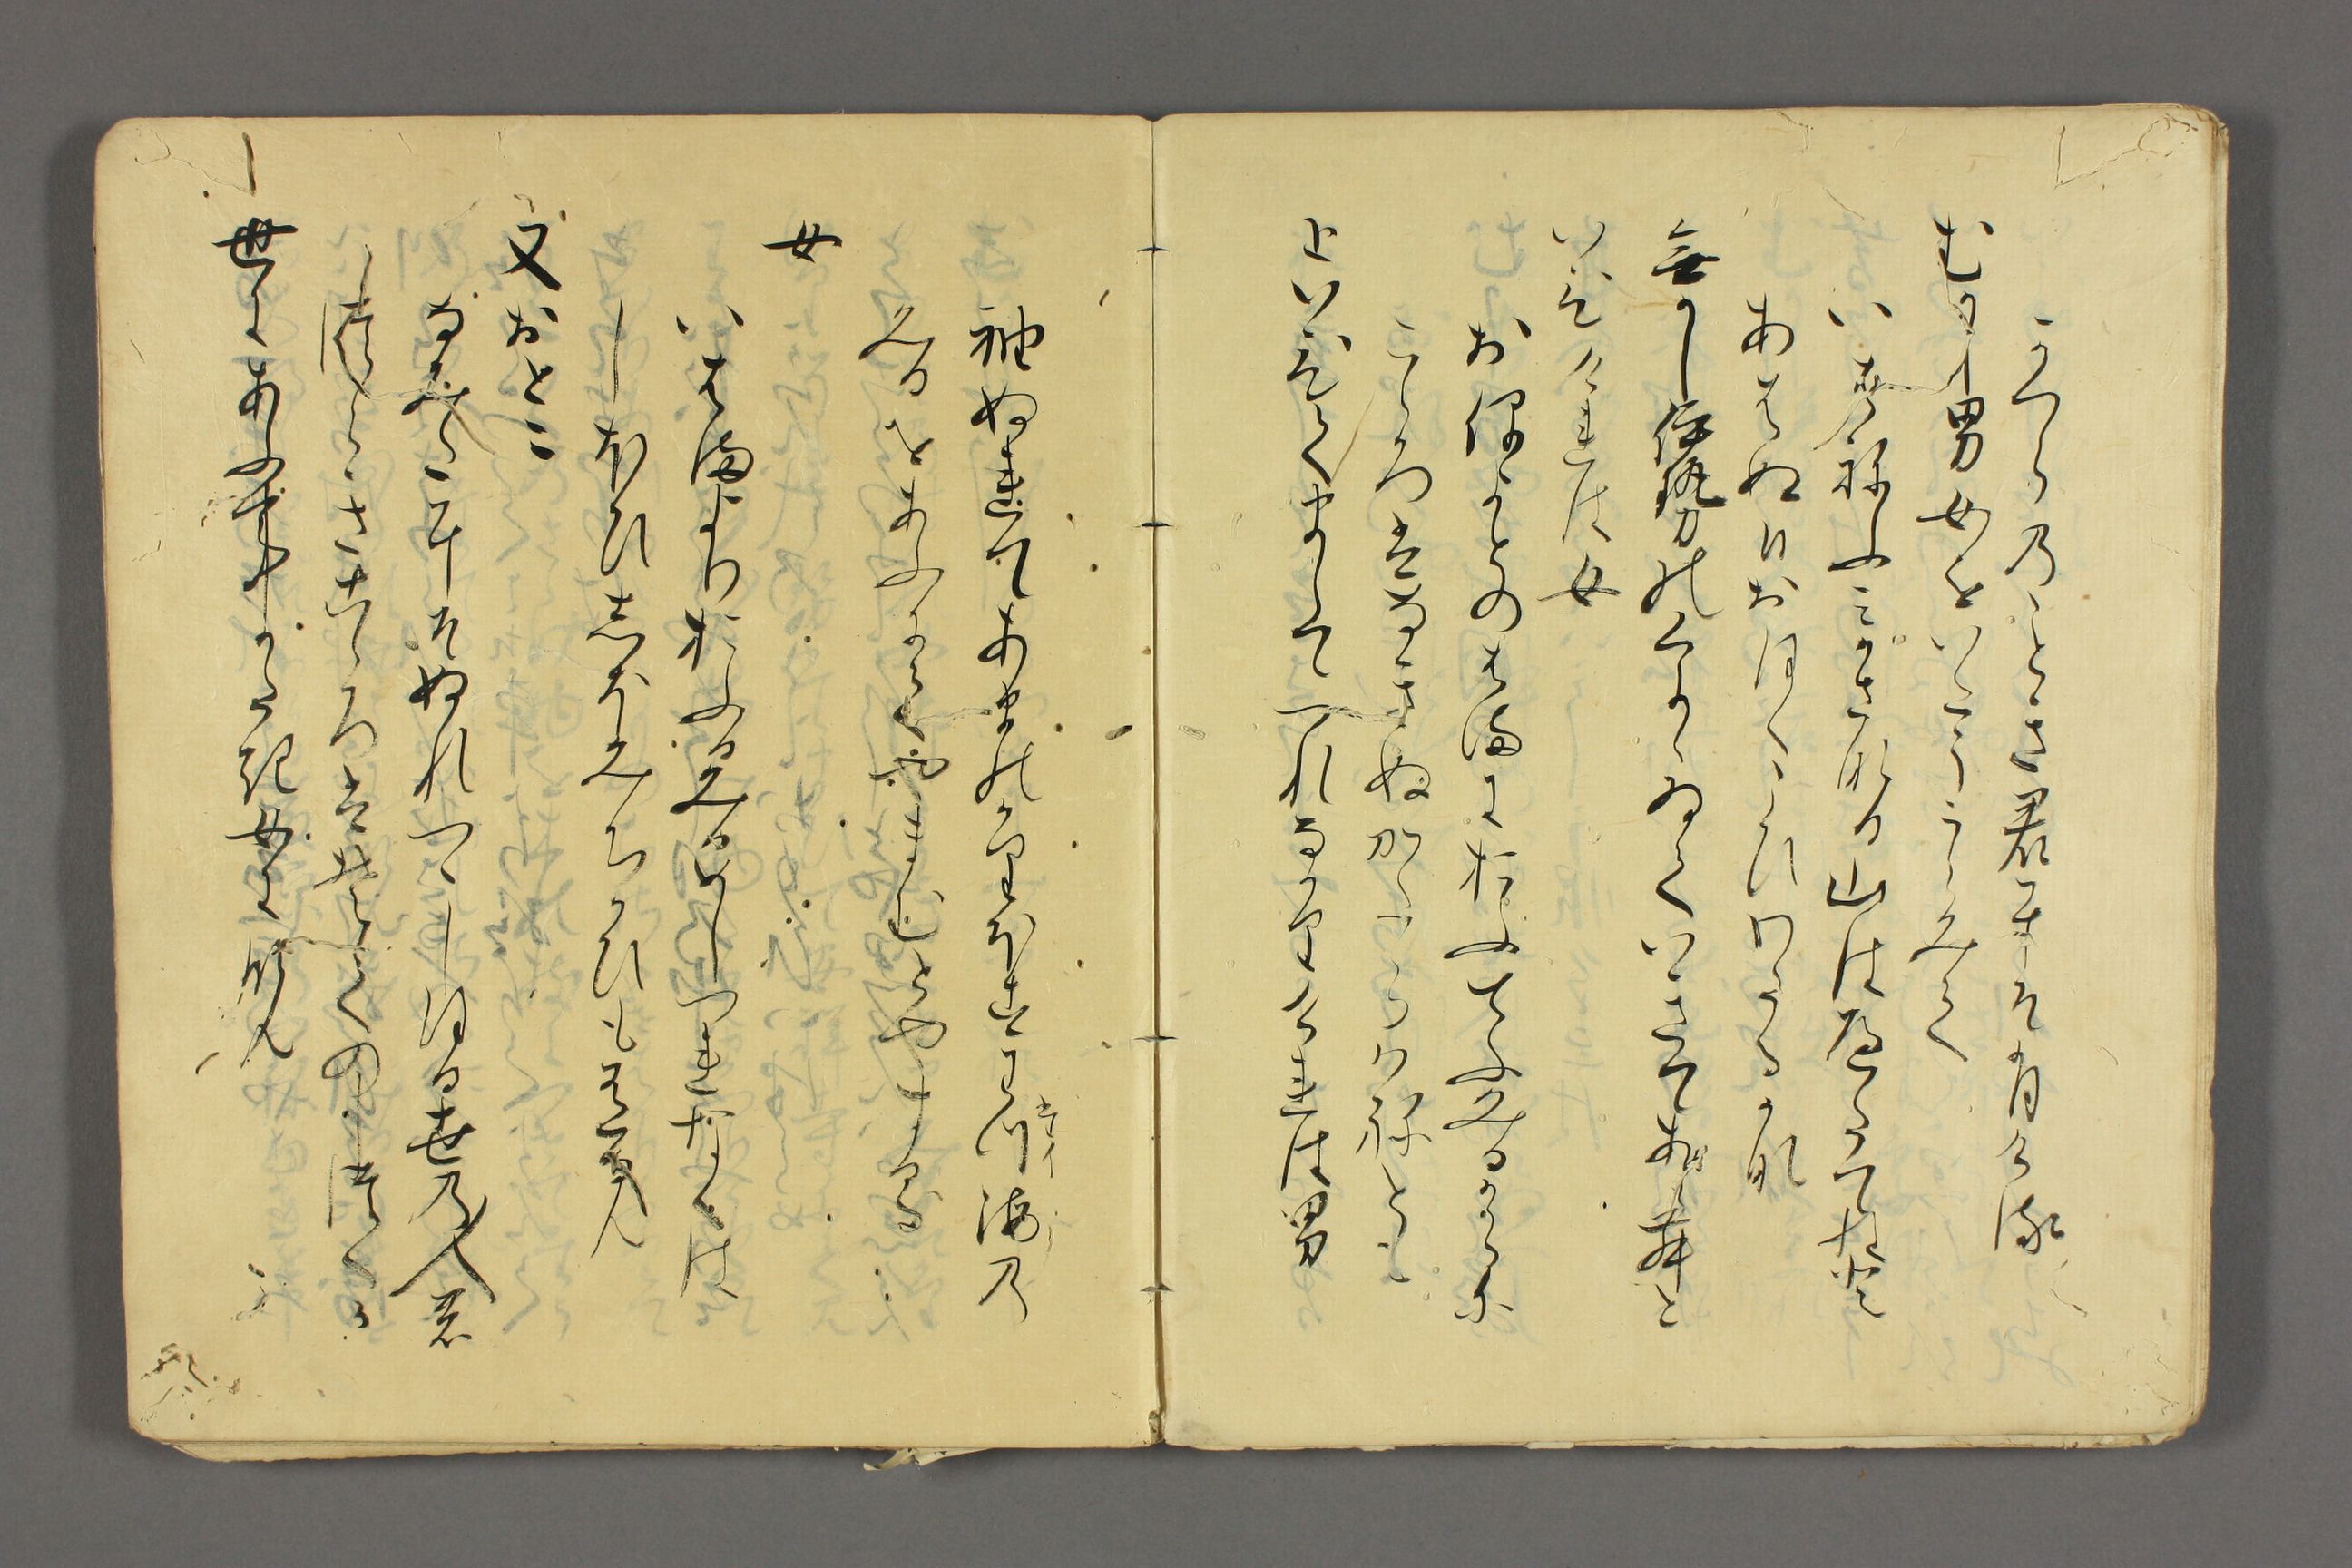 かつらのことき君にそ有ける
むかし男女をいたううらみて
いはねふみかさなる山はへたてねと
あはぬ日おほくこひわたるかな
むかし伊勢のくにゝゐていきてあらむと
いひけれは女
おほよとのはまにおふてふみるからに
こゝろはなきぬかたらはねとも
といひてましてつれなかりけれは男
袖ぬれてあまのかりほすわたつ海の
みるをあふにてやまむとやする
女
いはまよりおふるみるめしつれなくは
しほひしほみちかひも有なん
又おとこ
なみたにそぬれつゝしほる世の人の
つらきこゝろはそてのしつくか
世にあふ事かたき女になん